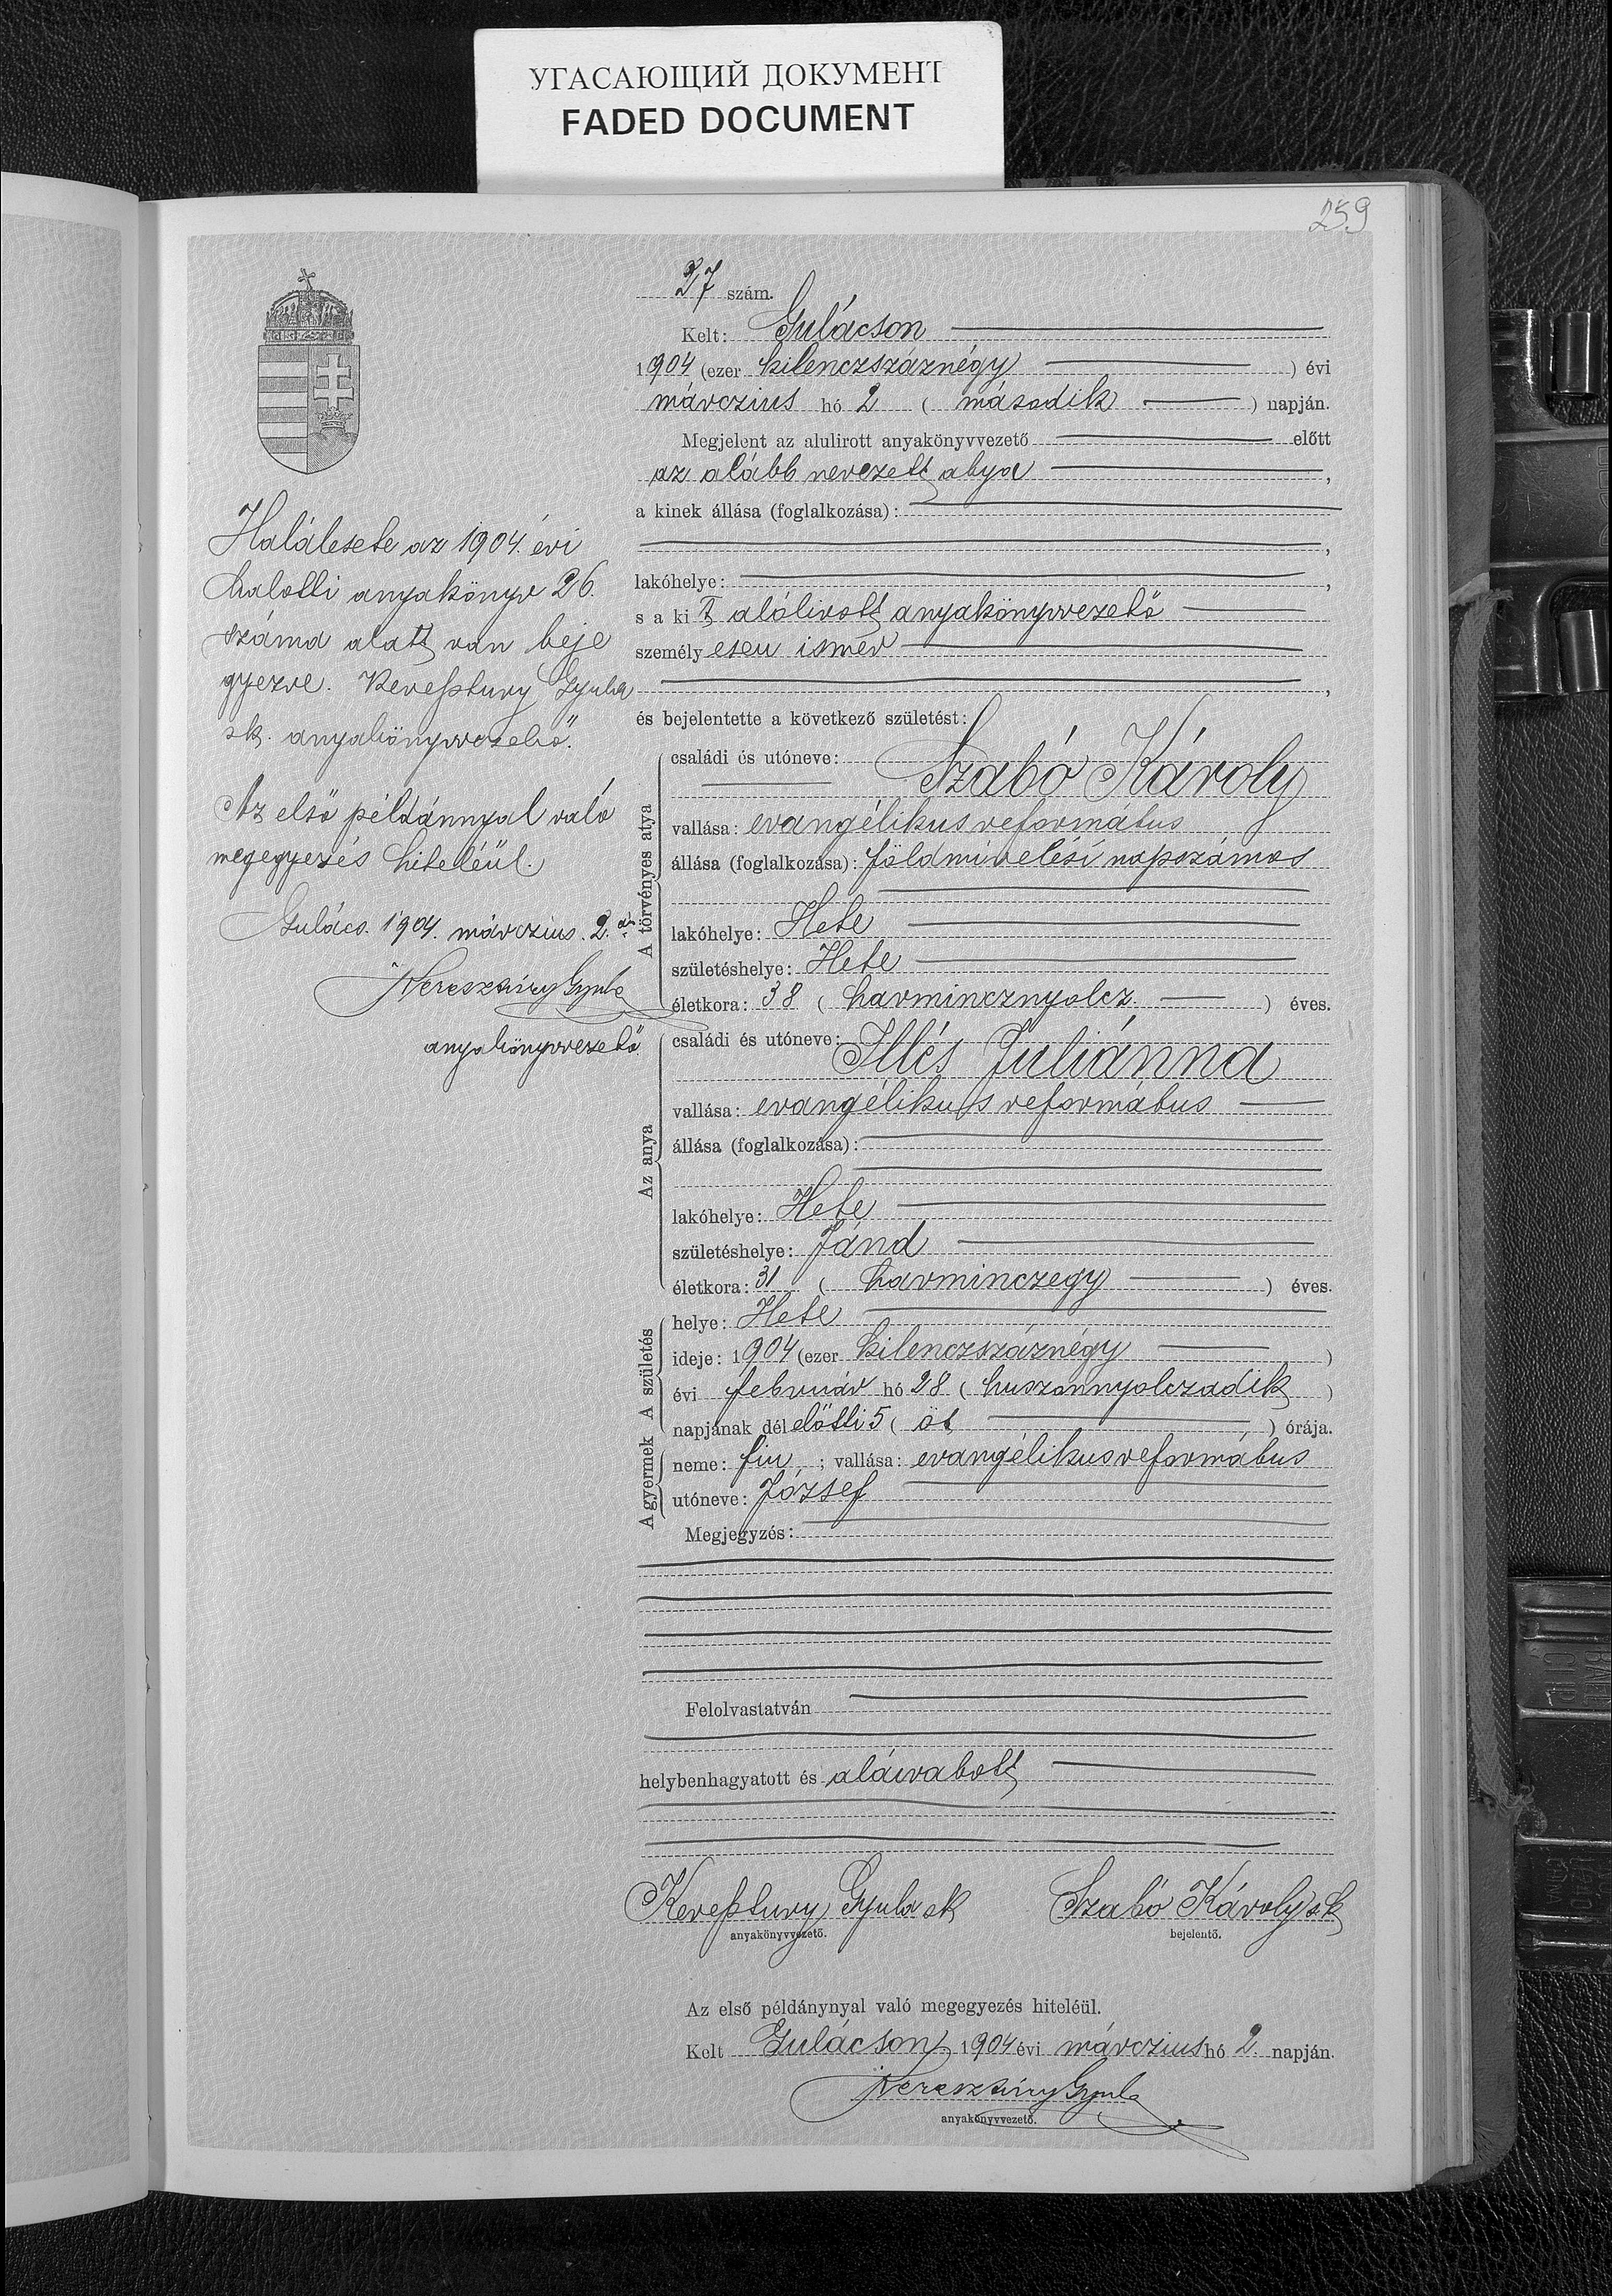 УГАСАЮЩИЙ ДОКУМЕНТ
FADED DOCUMENT
259
37 szám.
Kelt: Gulácson
1904 (ezer kilenczszáznégy) évi
márczius hó 2 (második) napján.
Megjelent az alulirott anyakönyvvezető előtt
az alább nevezett atya,
a kinek állása (foglalkozása):
,
lakóhelye: ,
s a kit alólirott anyakönyvvezető
személyesen ismer
,
és bejelentette a következő születést:
A törvényes atya
családi és utóneve: Szabó Károly
vallása: evangélikus református
állása (foglalkozása): földmivelési napszámos
lakóhelye: Hete
születéshelye: Hete
életkora: 38 (harmincznyolcz) éves.
Az anya
családi és utóneve: Illés Juliánna
vallása: evangélikus református
állása (foglalkozása):
lakóhelye: Hete
születéshelye: Jánd
életkora: 31 (harminczegy) éves.
A születés
helye: Hete
ideje: 1904 (ezer kilenczszáznégy)
évi február hó 28 (huszonnyolczadik)
napjának délelőtti 5 (öt) órája.
A gyermek
neme: fiu; vallása: evangélikus református
utóneve: József
Megjegyzés:
Felolvastatván
helybenhagyatott és aláiratott
Kereßtury Gyula sk
anyakönyvvezető.
Szabó Károly sk
bejelentő.
Az első példánynyal való megegyezés hiteléül.
Kelt Gulácson 1904 évi márczius hó 2. napján.
Keresztúry Gyula
anyakönyvvezető.
Halálesete az 1904. évi
halotti anyakönyv 26.
száma alatt van beje
gyezve. Kereßtury Gyula
sk. anyakönyvvezető.
Az első példánnyal való
megegyezés hiteléül.
Gulács. 1904. márczius. 2.án
Keresztúry Gyula
anyakönyvvezető